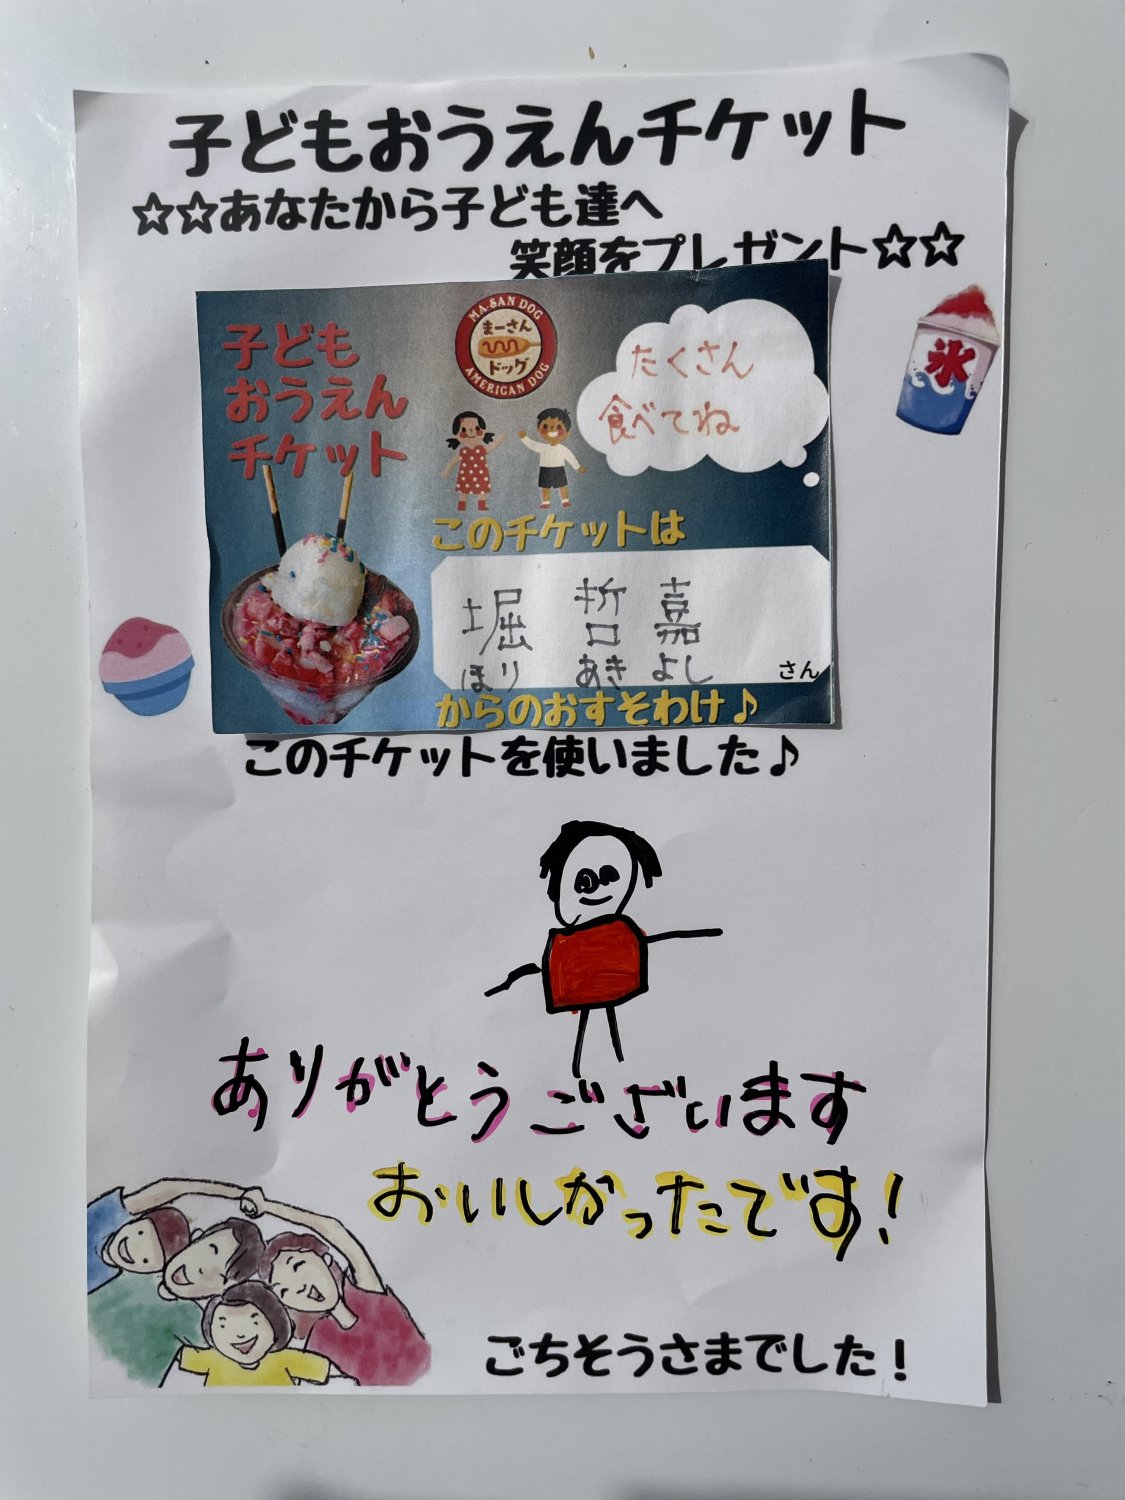 子どもおうえんチケット
☆☆あなたから子ども達へ
笑顔をプレゼント☆☆
氷
子ども
おうえん
チケット
MA-SAN DOG
まーさん
ドッグ
AMERICAN DOG
たくさん
食べてね
このチケットは
堀 哲 嘉
ほり あき よし
さん
からのおすそわけ♪
このチケットを使いました♪
ありがとうございます
おいしかったです!
ごちそうさまでした!